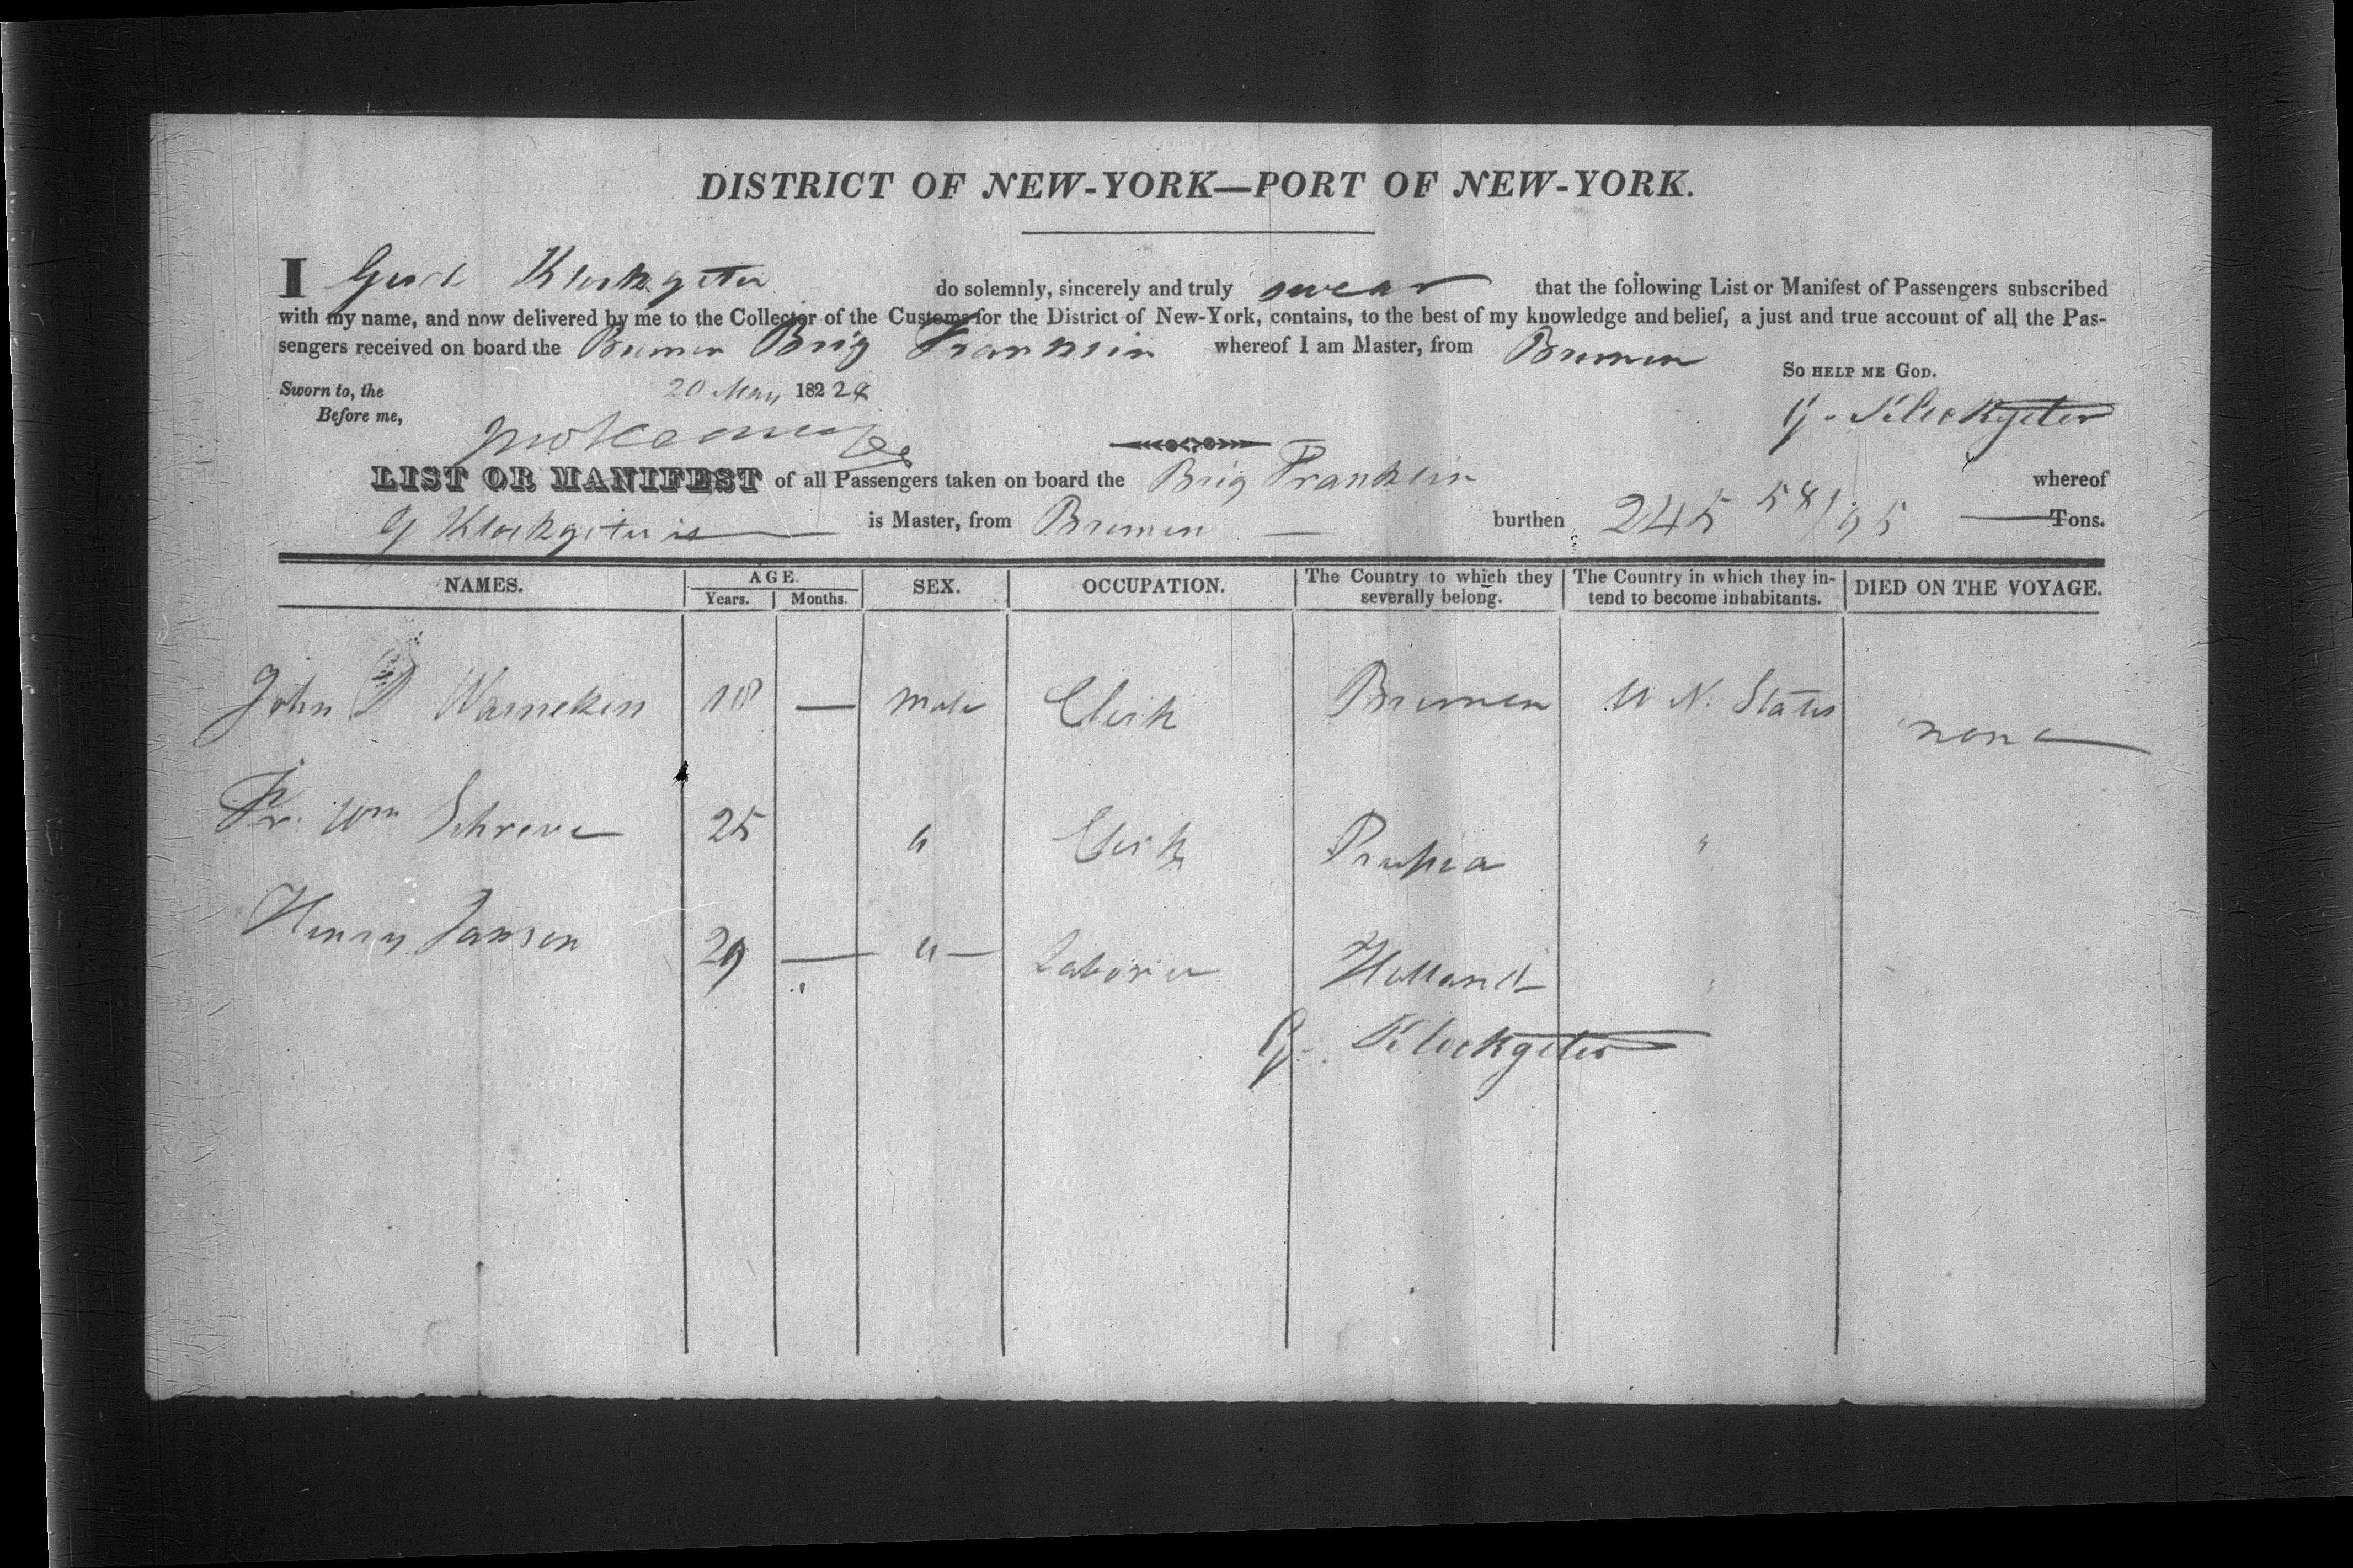 DISTRICT OF NEW-YORK—PORT OF NEW-YORK.
I Gerd Klockgeter do solemnly, sincerely and truly swear that the following List or Manifest of Passengers subscribed
with my name, and now delivered by me to the Collector of the Customs for the District of New-York, contains, to the best of my knowledge and belief, a just and true account of all the Pas-
sengers received on board the Bremen Brig Franklin whereof I am Master, from Bremen
So HELP ME GOD.
Sworn to, the 20 May 182
Before me,
G. Klockgeter
LIST OR MANIFEST of all Passengers taken on board the Brig Franklin whereof
G Klockgeter is is Master, from Bremen burthen 245 58/95 Tons.
NAMES. AGE. Years. Months. SEX. OCCUPATION. The Country to which they severally belong. The Country in which they in-tend to become inhabitants. DIED ON THE VOYAGE.
John D Warneken 18 — male Clerk Bremen U N. States none
Fr. Wm Schreve 25 " Clerk Prussia "
Henry Janson 29 — " — Laborer Holland "
G. Klockgeter